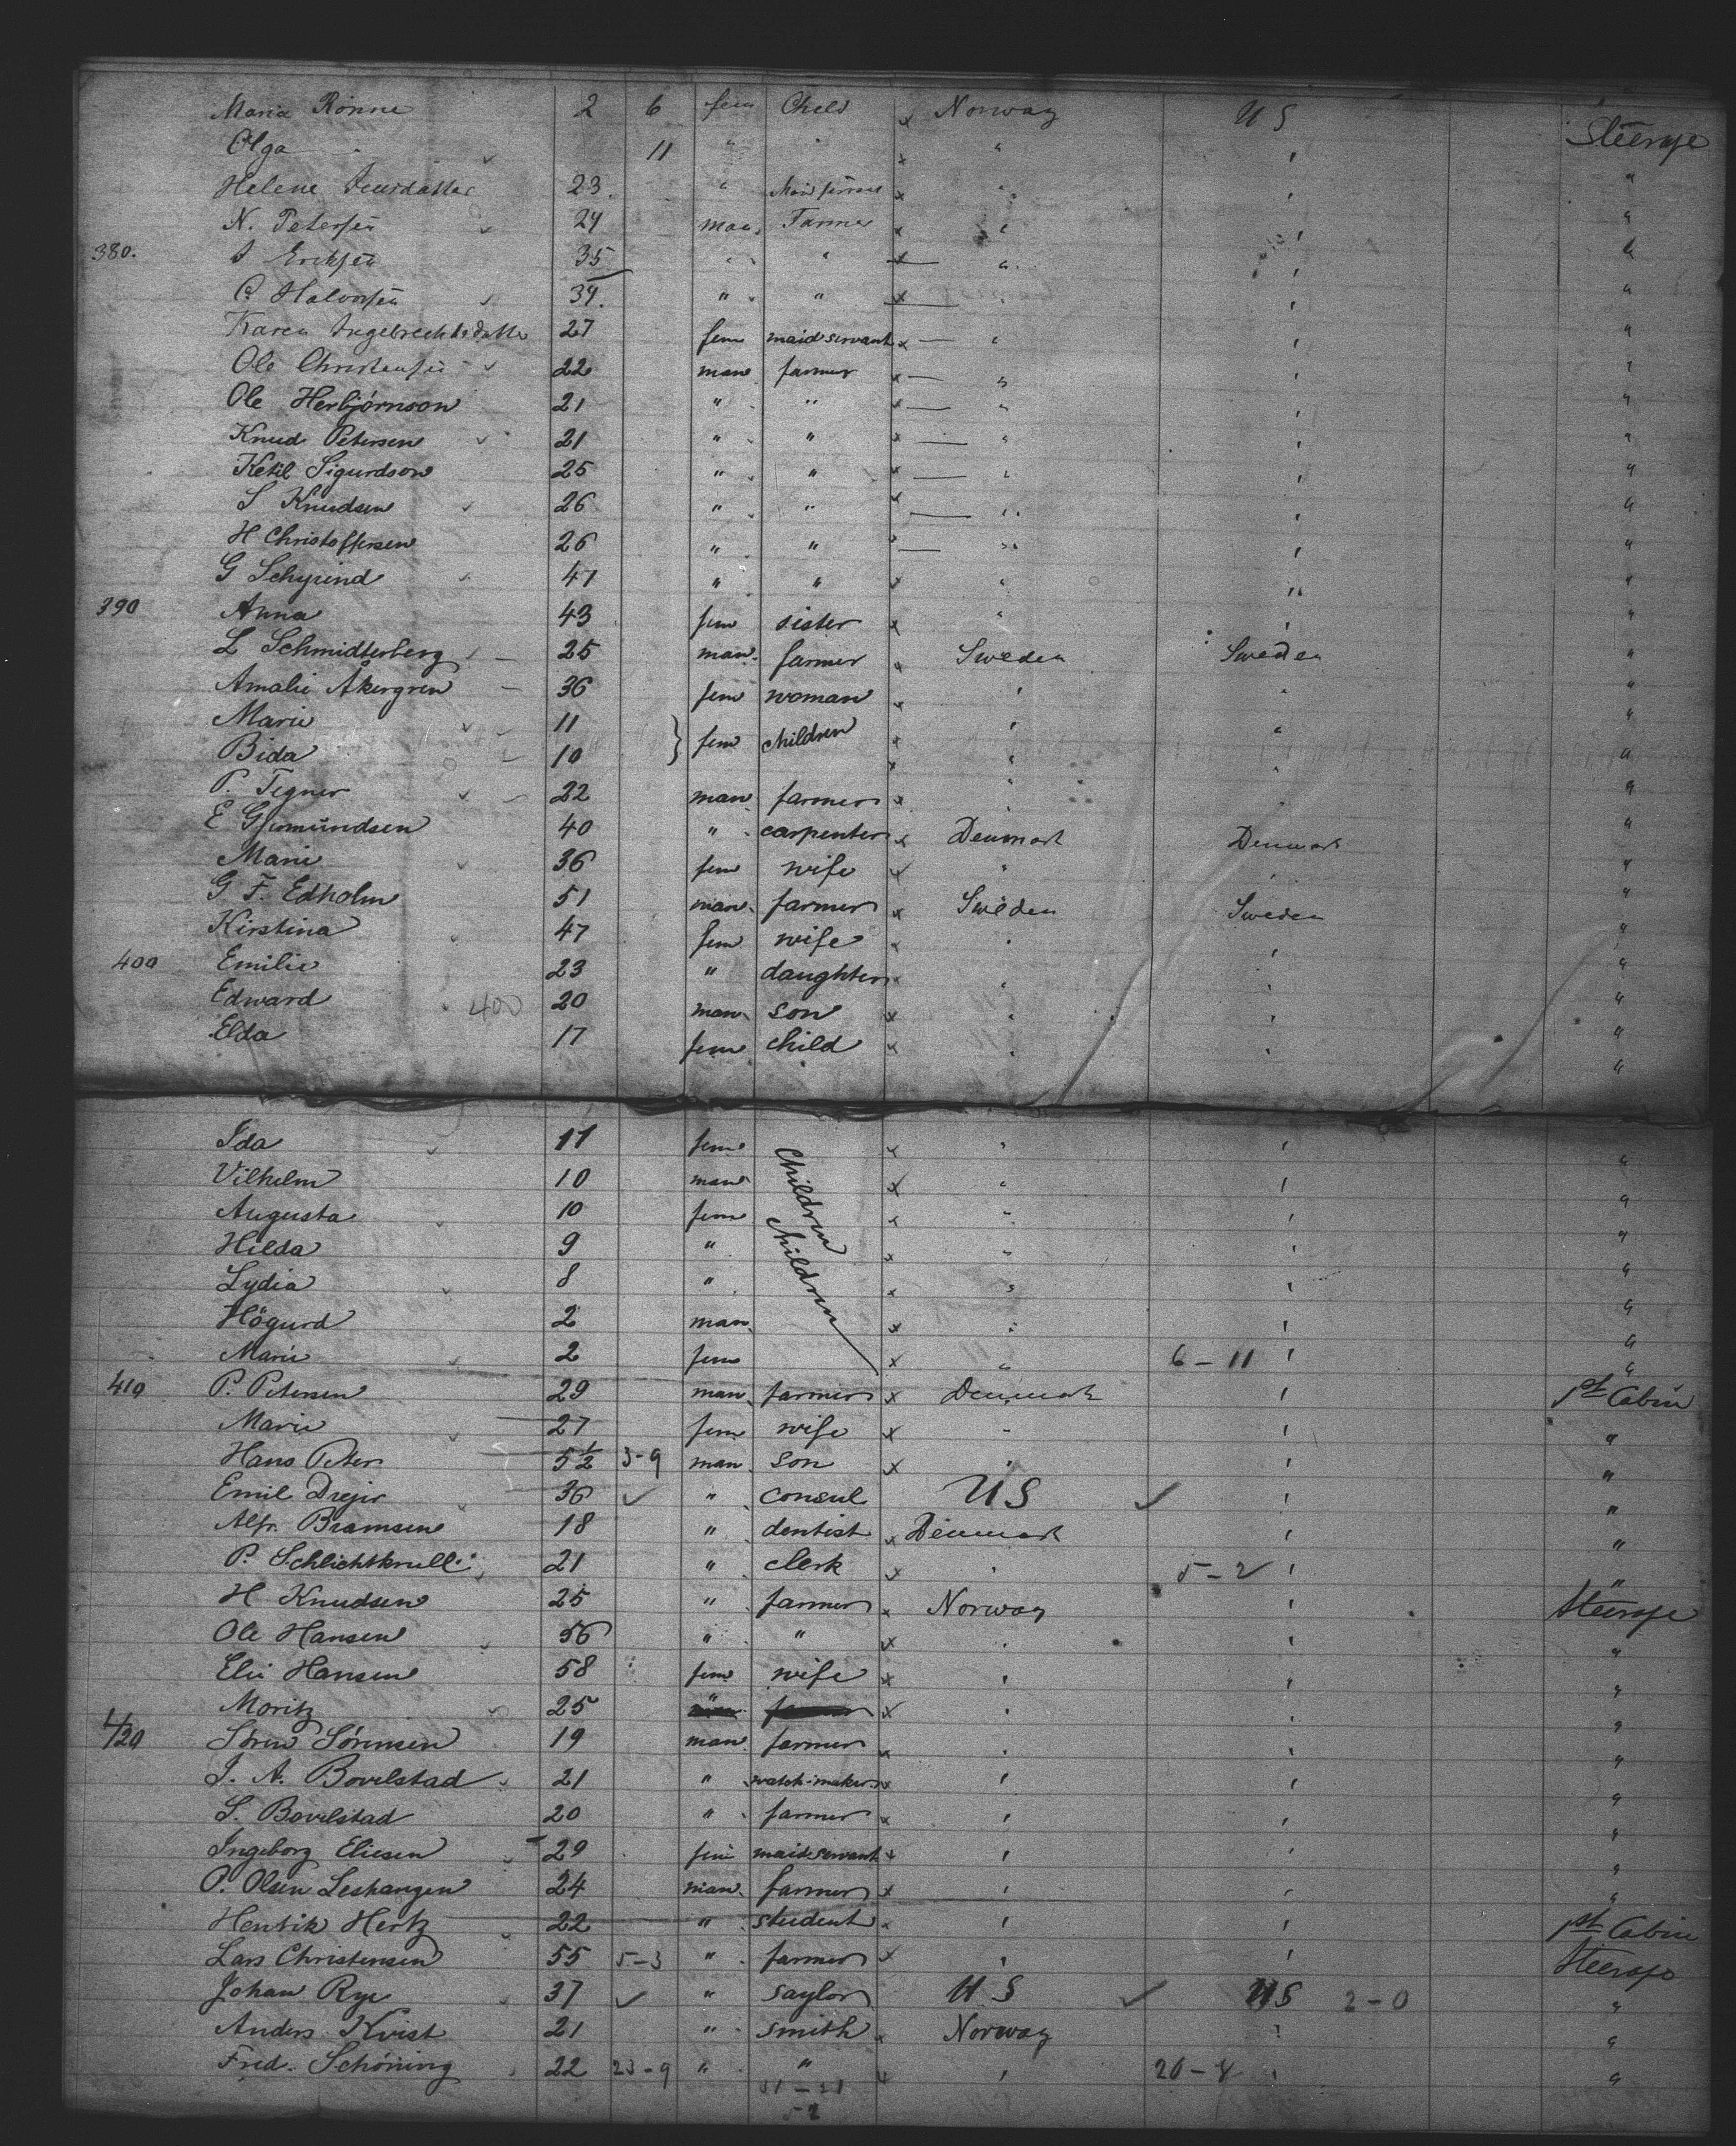 Maria Rönne 2 6 fem Child x Norway U S Steerage
Olga 11 " " x " "
Helene 23 " x " " "
N. Petersen 24 man Farmer x " " "
380. Eriksen 35 " " x " " "
C. Halvorsen 34 " " x " " "
Karen Ingebrechtsdatter 27 fem maid servant x " " "
Ole Christensen 22 man farmer x " " "
Ole Herbjörnson 21 " " x " " "
Knud Petersen 21 " " x " " "
Ketil Sigurdson 25 " " x " " "
S Knudsen 26 " " x " " "
H Christoffersen 26 " " x " " "
G Schyrind 47 " " x " " "
390 Anna 43 fem sister x " " "
L Schmidterberg 25 man farmer x Sweden Sweden "
Amalie Åkergren 36 fem woman x " " "
Marie 11 } fem children x " " "
Bida 10 x " " "
P. Tegner 22 man farmer x " " "
E Gjermündsen 40 " carpenter x Denmark Denmark "
Marie 36 fem wife x " " "
G F. Edholm 51 man farmer x Sweden Sweden "
Kirstina 47 fem wife x " " "
400 Emilie 23 " daughter x " " "
Edward 400 20 man son x " " "
Elda 17 fem child x " " "
Ida 11 fem Children x " " "
Vilhelm 10 man x " " "
Augusta 10 fem x " " "
Hilda 9 " Children x " " "
Lydia 8 " x " " "
Högurd 2 man x " " "
Marie 2 fem x " 6-11 " "
410 P. Petersen 29 man farmer x Denmark " 1st Cabin
Marie 27 fem wife x " " "
Hans Peter 5½ 3-9 man son x " " "
Emil Drejer 36 ✓ " consul U S ✓ " "
Alfr. Bramsen 18 " dentist x Denmark " "
P. Schlichtkrull 21 " clerk x " 5-2 " "
H Knudsen 25 " farmer x Norway " Steerage
Ole Hansen 56 " " x " " "
Elie Hansen 58 fem wife x " " "
Moritz 25 x " " "
420 Sören Sörensen 19 man farmer x " " "
J. A. Bovelstad 21 " watch-maker x " " "
S. Bovelstad 20 " farmer x " " "
Ingeborg Eliesen 29 fem maid servant x " " "
P. Olsen Leshangen 24 man farmer x " " "
Henrik Hertz 22 " student x " " 1st Cabin
Lars Christensen 55 5-3 " farmer x " " Steerage
Johan Rye 37 ✓ " saylor U S ✓ U S 2-0 "
Anders Kvist 21 " smith x Norway " "
Fred. Schöning 22 23-9 " " x " 20-8 " "
51-21
52